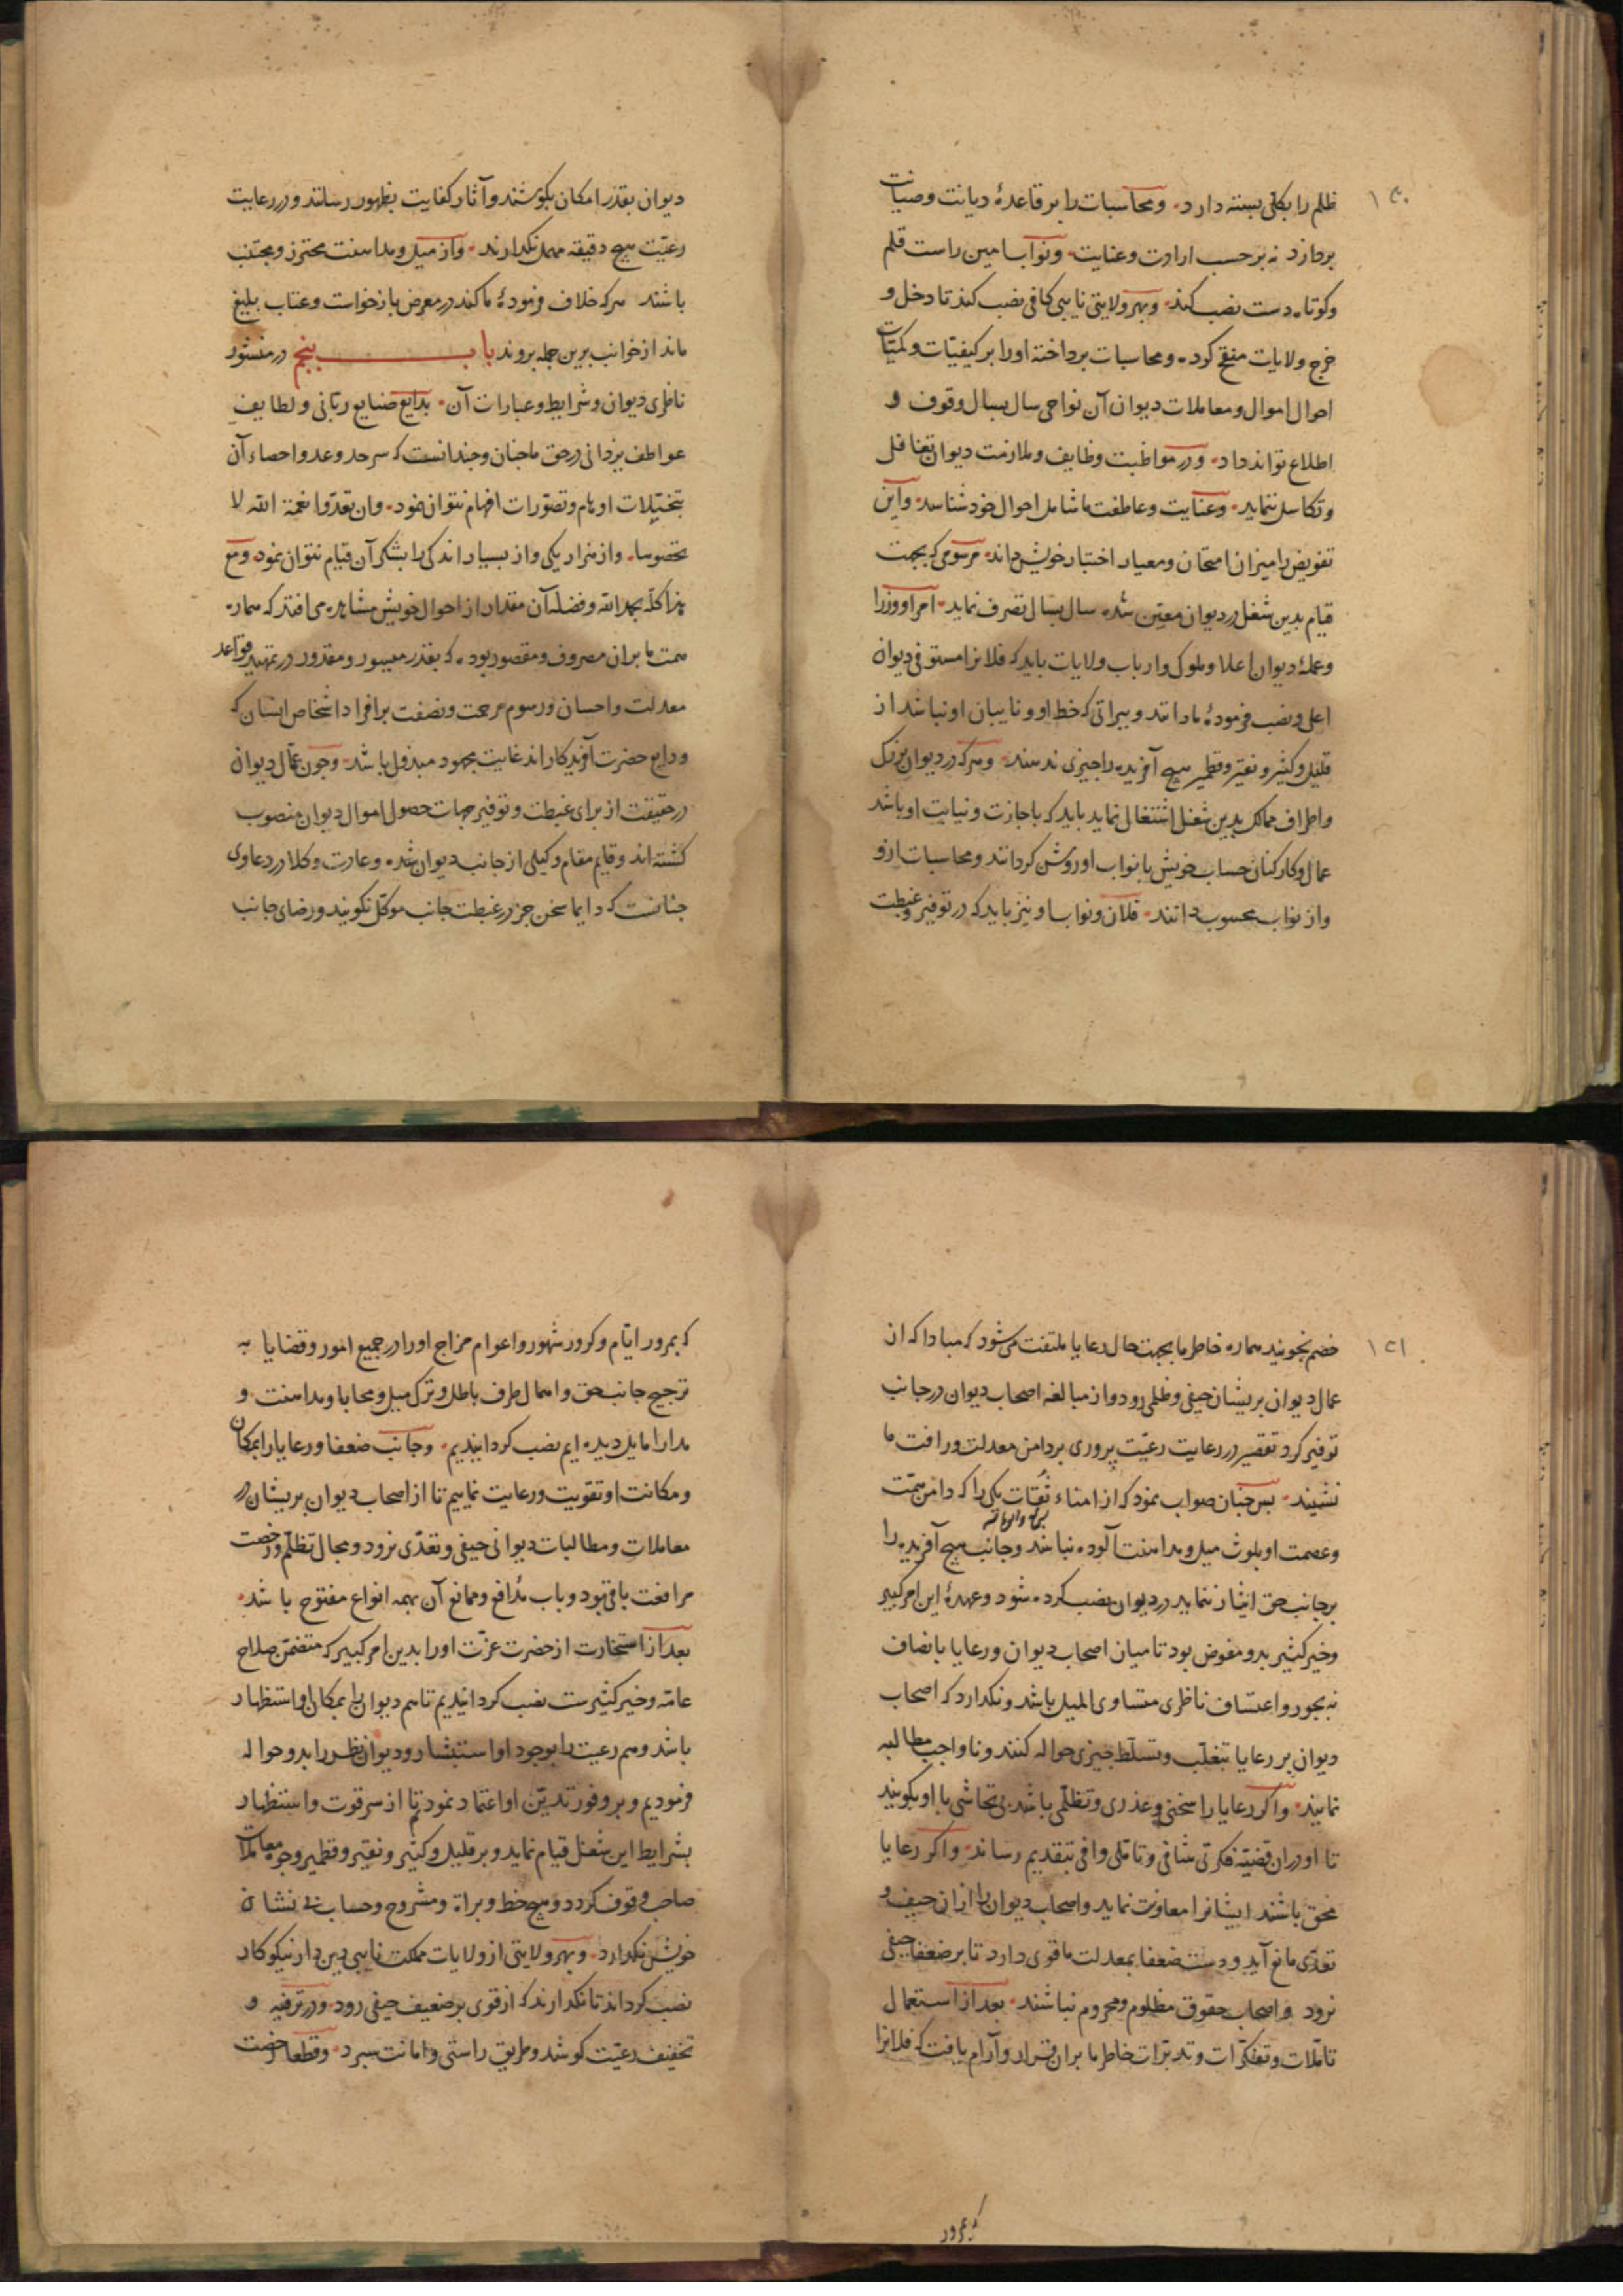 ۱۲۰
ظلم را بکلی بسته دارد و محاسبات را بر قاعدهٔ دیانت و صیانت
بردازد نه بر حسب ارادت و عنایت و نواب امین راست قلم
و کوتاه دست نصب کند و بهر ولایتی نایبی کافی نصب کند تا دخل و
خرج ولایات منقح کرده و محاسبات برداخته او را بر کیفیّات و کمیّات
احوال اموال و معاملات دیوان آن نواحی سال بسال وقوف و
اطلاع تواند داد و در مواظبت وظایف و ملازمت دیوان تغافل
و تکاسل ننماید و عنایت و عاطفت ما شامل احوال خود شناسد و این
تفویض را میزان امتحان و معیار اختبار خویش داند مرسومی که بجهت
قیام بدین شغل در دیوان معیّن شده سال بسال تصرف نماید امرا و وزرا
و عملهٔ دیوان اعلا و ملوک و ارباب ولایات باید که فلانرا مستوفی دیوان
اعلی و نصب فرمودهٔ ما دانند و بیراتی که خط او و نایبان او نباشد از
قلیل و کثیر و نقیر و قطمیر هیچ آفریده را چیزی ندهند و هر که در دیوان بزرک
و اطراف ممالک بدین شغل اشتغال نماید باید که باجازت و نیابت او باشد
عمال و کارکنان حساب خویش با نواب او روشن کردانند و محاسبات ازو
و از نواب محسوب دانند فلان و نواب او نیز باید که در توفیر و غبطت
دیوان بقدر امکان بکوشند و آثار کفایت بظهور رسانند و در رعایت
رعیّت هیچ دقیقه مهمل نکذارند و از میل و مداهنت محترز و مجتنب
باشند هر که خلاف فرمودهٔ ما کند در معرض بازخواست و عتاب بلیغ
ماند از جوانب برین جمله بروند باب پنجم در منشور
ناظری دیوان و شرایط و عبارات آن بدایع صنایع ربّانی و لطایف
عواطف یزدانی در حق ما جنان و جندانست که سر حد و عد و احصاء آن
بتخیّلات اوهام و تصوّرات افهام نتوان نمود و ان تعدّوا نعمة الله لا
تحصوها و از هزار یکی و از بسیار اندکی را بشکر آن قیام نتوان نمود و مع
هذا کلّه بحمد الله و فضله آن مقدار از احوال خویش مشاهده می افتد که همواره
همت ما بران مصروف و مقصور بوده که بقدر میسور و مقدور در تمهید قواعد
معدلت و احسان و رسوم مرحمت و نصفت بر افراد اشخاص انسان که
ودایع حضرت آفریدکاراند غایت مجهود مبذول باشد و جون عمّال دیوان
در حقیقت از برای غبطت و توفیر جهات حصول اموال دیوان منصوب
کشته اند و قایم مقام وکیلی از جانب دیوان شده و عادت وکلا در دعاوی
جنانست که دایما سخن جز در غبطت جانب موکّل نکویند و رضای جانب
۱۲۱
خصم نجویند همواره خاطر ما بجهت حال رعایا ملتفت می شود که مبادا که از
عمال دیوان بریشان حیفی و ظلمی رود و از مبالغه اصحاب دیوان در جانب
توفیر کرد تقصیر در رعایت رعیّت پروری بر دامن معدلت و رافت ما
نشیند بس جنان صواب نمود که از امناء ثقات یکی را که دامن همّت
و عصمت او بلوث میل و مداهنت آلوده نباشد و جانب هیچ آفریده را
بر جانب حق ایثار ننماید در دیوان نصب کرده شود و عهدهٔ این امر کبیر
و خیر کثیر بدو مفوض بود تا میان اصحاب دیوان و رعایا بانصاف
نه بجور و اعتساف ناظری متساوی المیل باشد و نکذارد که اصحاب
دیوان بر رعایا بتغلّب و تسلّط چیزی حواله کنند و ناواجب مطالبه
نمایند و اکر رعایا را سخنی و عذری و تظلّمی باشد بی تحاشی با او بکویند
تا او دران قضیّه فکرتی شافی و تاملی وافی بتقدیم رساند و اکر رعایا
محق باشند ایشانرا معاونت نماید و اصحاب دیوان را ازان حیف و
تعدّی مانع آید و دست ضعفا بمعدلت ما قوی دارد تا بر ضعفا حیفی
نرود و اصحاب حقوق مظلوم و محروم نباشند بعد از استعمال
تاملّات و تفکّرات و تدبّرات خاطر ما بران قرار و آرام یافت که فلانرا
که بمرور
که بمرور ایّام و کرور شهور و اعوام مزاج او را در جمیع امور و قضایا به
ترجیح جانب حق و اهمال طرف باطل و ترک میل و محابا و مداهنت و
مدارا مایل دیده ایم نصب کردانیدیم و جانب ضعفا و رعایا را بمکان
و مکانت او تقویت و رعایت نماییم تا از اصحاب دیوان بریشان در
معاملات و مطالبات دیوانی حیفی و تعدّی نرود و مجال تظلّم و رخصت
مرافعت باقی بود و باب مدافع و ممانع آن بهمه انواع مفتوح باشد
بعد از استخارت از حضرت عزّت او را بدین امر کبیر که متضمّن صلاح
عامّه و خیر کثیرست نصب کردانیدیم تا هم دیوان را بمکان او استظهار
باشد و هم رعیت را بوجود او استبشار و دیوان نظر را بدو حواله
فرمودیم و بر وفور تدیّن او اعتماد نمودیم تا از سر قوت و استظهار
بشرایط این شغل قیام نماید و بر قلیل و کثیر و نقیر و قطمیر وجوه معاملات
صاحب وقوف کردد و هیچ خط و براة و مشروح و حساب بی نشان
خویش نکذارد و بهر ولایتی از ولایات مملکت نایبی دین دار نیکوکار
نصب کرداند تا نکذارند که از قوی بر ضعیف حیفی رود و در ترفیه و
تخفیف رعیّت کوشد و طریق راستی و امانت سبرد و قطعا رخصت